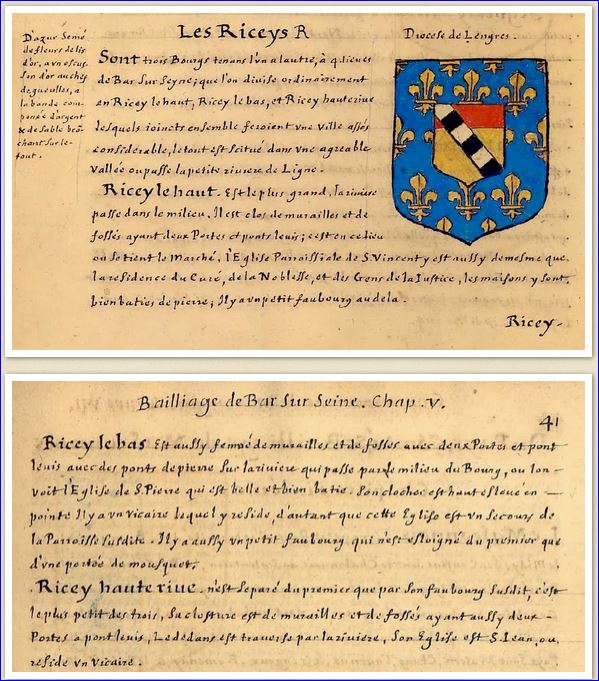 Les Riceys R
Diocese de Lengres.
D'azur Semé
de fleurs de lis
d'or, a vn escus-
son d'or au chef
de gueulles, a
la bande com-
ponée d'argent
& de sable bro-
chant sur le-
tout.
Sont trois Bourgs tenans l'vn a lautre, à 4. lieues
de Bar Sur Seyne; que l'on divise ordinairement
en Ricey le haut, Ricey le bas, et Ricey hauterive
lesquels ioincts ensemble feroient vne Ville assés
considerable, le tout est scitué dans vne agreable
vallée ou passe la petite riviere de Ligne.
Ricey le haut. Est le plus grand, la riviere
passe dans le milieu, Il est clos de murailles et de
fossés ayant deux Portes et ponts leuis; c'est en ce lieu
ou se tient le Marché, l'Eglise Parroissiale de S. Vincent y est aussy de mesme que
la residence du Curé, de la Noblesse, et des Gens de la Iustice, les maisons y sont
bien baties de pierre; Il y a vn petit faubourg au dela.
Ricey-
Bailliage de Bar Sur Seine. Chap. V.
41
Ricey le bas Est aussy fermé de murailles et de fosses avec deux Portes et pont
leuis avec des ponts de pierre Sur la riviere qui passe par le milieu du Bourg, ou lon-
voit l'Eglise de S. Pierre qui est belle et bien batie. Son clocher est haut esleué en
pointe Il y a vn vicaire lequel y reside, d'autant que cette Eglise est vn Secours de
la Parroisse susdite. Il y a aussy vn petit faubourg qui n'est esloigné du premier que
d'vne portée de mousquet.
Ricey hauterive. n'est Separé du premier que par son faubourg susdit, c'est
le plus petit des trois, Sa closture est de murailles et de fossés ayant aussy deux-
Portes a pont leuis, Le dedans est traversé par la riviere, Son Eglise est S. Iean, ou
reside vn Vicaire.